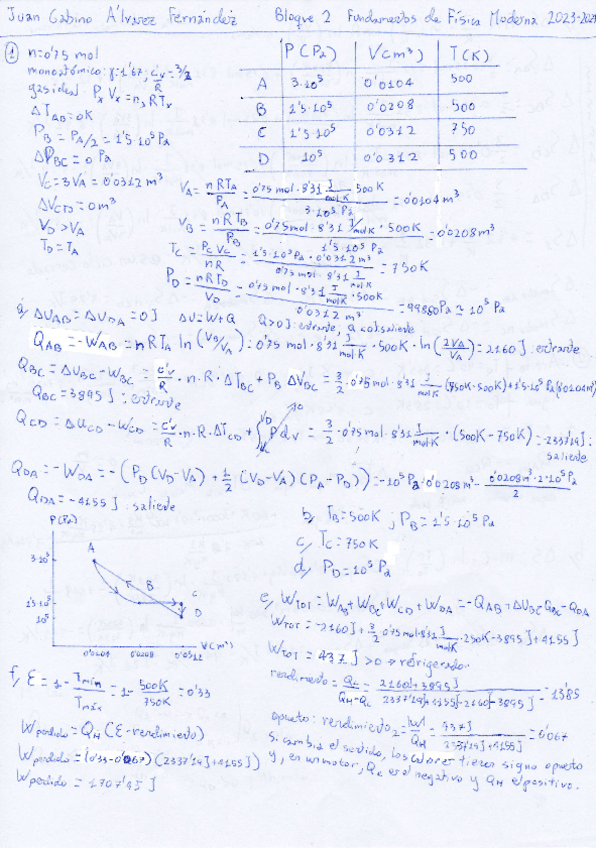 Juan Gabino Álvarez Fernández Bloque 2 Fundamentos de Física Moderna 2023-2024
① n=0'75 mol
monoatómico: γ=1'67; c'v/R=3/2
gas ideal: PxVx=nxRTx
ΔTAB=0K
PB=PA/2=1'5·10⁵Pa
ΔPBC=0 Pa
VC=3VA=0'0312 m³
ΔVCD=0m³
VD>VA
TD=TA
P(Pa) V(m³) T(K)
A 3·10⁵ 0'0104 500
B 1'5·10⁵ 0'0208 500
C 1'5·10⁵ 0'0312 750
D 10⁵ 0'0312 500
VA = nRTA/PA = 0'75 mol·8'31 J/molK·500K / 3·10⁵Pa = 0'0104m³
VB = nRTB/PB = 0'75mol·8'31 J/molK·500K / 1'5·10⁵Pa = 0'0208m³
TC = PCVC/nR = 1'5·10⁵Pa·0'0312m³ / 0'75mol·8'31 J/molK = 750K
PD = nRTD/VD = 0'75mol·8'31 J/molK·500K / 0'0312 m³ = 99860Pa ≃ 10⁵Pa
a, ΔUAB=ΔUDA=0J ΔU=W+Q Q>0J: entrante; Q<0: saliente
QAB=-WAB=nRTA ln(VB/VA)=0'75mol·8'31 J/molK·500K·ln(2VA/VA)=2160J: entrante
QBC=ΔUBC-WBC=c'v/R·n·R·ΔTBC+PBΔVBC=3/2·0'75mol·8'31 J/molK·(750K-500K)+1'5·10⁵Pa·0'0104m³
QBC=3895J: entrante
QCD=ΔUCD-WCD=c'v/R·n·R·ΔTCD+∫PdV=3/2·0'75mol·8'31 J/molK·(500K-750K)=-2337'19J: saliente
QDA=-WDA=-(PD(VD-VA)+1/2(VD-VA)(PA-PD))=-10⁵Pa·0'0208m³-0'0208m³·2·10⁵Pa/2
QDA=-4155J: saliente
b, TB=500K; PB=1'5·10⁵Pa
c, TC=750K
d, PD=10⁵Pa
P(Pa)
3·10⁵
1'5·10⁵
10⁵
A
B
C
D
V(m³)
0'0104 0'0208 0'0312
e, WTOT=WAB+WBC+WCD+WDA=-QAB+ΔUBC-QBC-QDA
WTOT=-2160J+3/2·0'75mol·8'31 J/molK·250K-3895J+4155J
WTOT=437J>0→refrigerador
rendimiento=QC/(QH-QC)=(2160J+3895J)/(2337'19J+4155J-2160J-3895J)=13'85
opuesto: rendimiento2=|W|/QH=437J/(2337'19J+4155J)=0'067
Si cambia el sentido, los valores tienen signo opuesto
y, en un motor, QC es el negativo y QH el positivo.
f, ε=1-Tmín/Tmáx=1-500K/750K=0'33
Wperdido=QH(ε-rendimiento)
Wperdido=(0'33-0'067)(2337'19J+4155J)
Wperdido=1707'45J